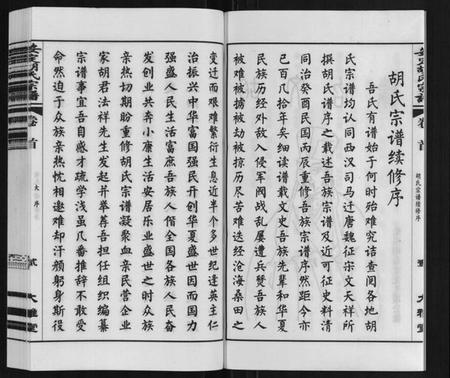 胡氏宗谱续修序
吾氏有谱始于何时殆难究诘查阅各地胡
氏宗谱均认同西汉司马迁唐魏征宋文天祥所
撰胡氏谱序之载述吾族宗谱及近可征史料清
同治癸酉民国丙辰重修吾族宗谱序然距今亦
已百几拾年矣细读谱载文史吾族先辈和华夏
民族历经外敌入侵军阀战乱屡遭兵燹吾族人
被难被掳被劫被掠历尽苦难迭经沧海桑田之
变迁而艰难繁衍生息近半个多世纪逢英主仁
治振兴中华富国强民开创华夏盛世因而国力
强盛人民生活富庶吾族人偕全国各族人民奋
发创业共奔小康生活安居乐业盛世之时众族
亲热切期盼重修胡氏宗谱凝聚血亲民营企业
家胡君法祥先生发起并举荐吾担任组织编纂
宗谱事宜吾自惑才疏学浅虽几番推辞不敢受
命然迫于众族亲热忱相邀难却汗颜躬身斯役
胡氏宗谱续修序
壹
大雅堂
安定胡氏宗谱
卷首
大序
贰
大雅堂